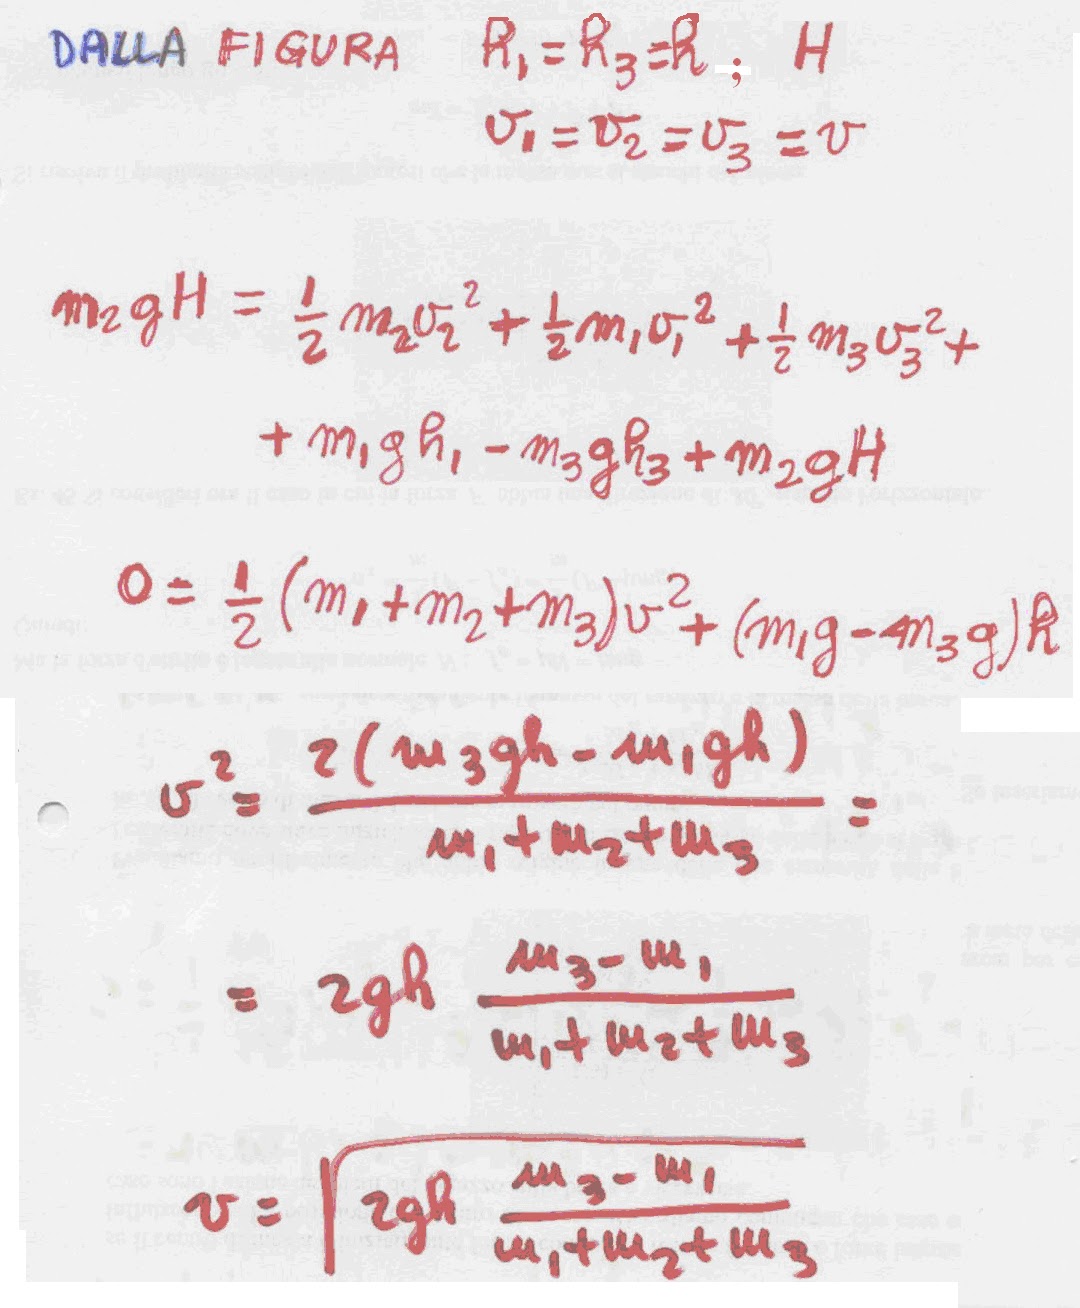 DALLA FIGURA h₁ = h₃ = h ; H
v₁ = v₂ = v₃ = v
m₂gH = 1/2 m₂v₂² + 1/2 m₁v₁² + 1/2 m₃v₃² +
+ m₁gh₁ - m₃gh₃ + m₂gH
0 = 1/2 (m₁ + m₂ + m₃)v² + (m₁g - m₃g)h
v² = 2(m₃gh - m₁gh) / m₁ + m₂ + m₃ =
= 2gh m₃ - m₁ / m₁ + m₂ + m₃
v = √2gh m₃ - m₁ / m₁ + m₂ + m₃